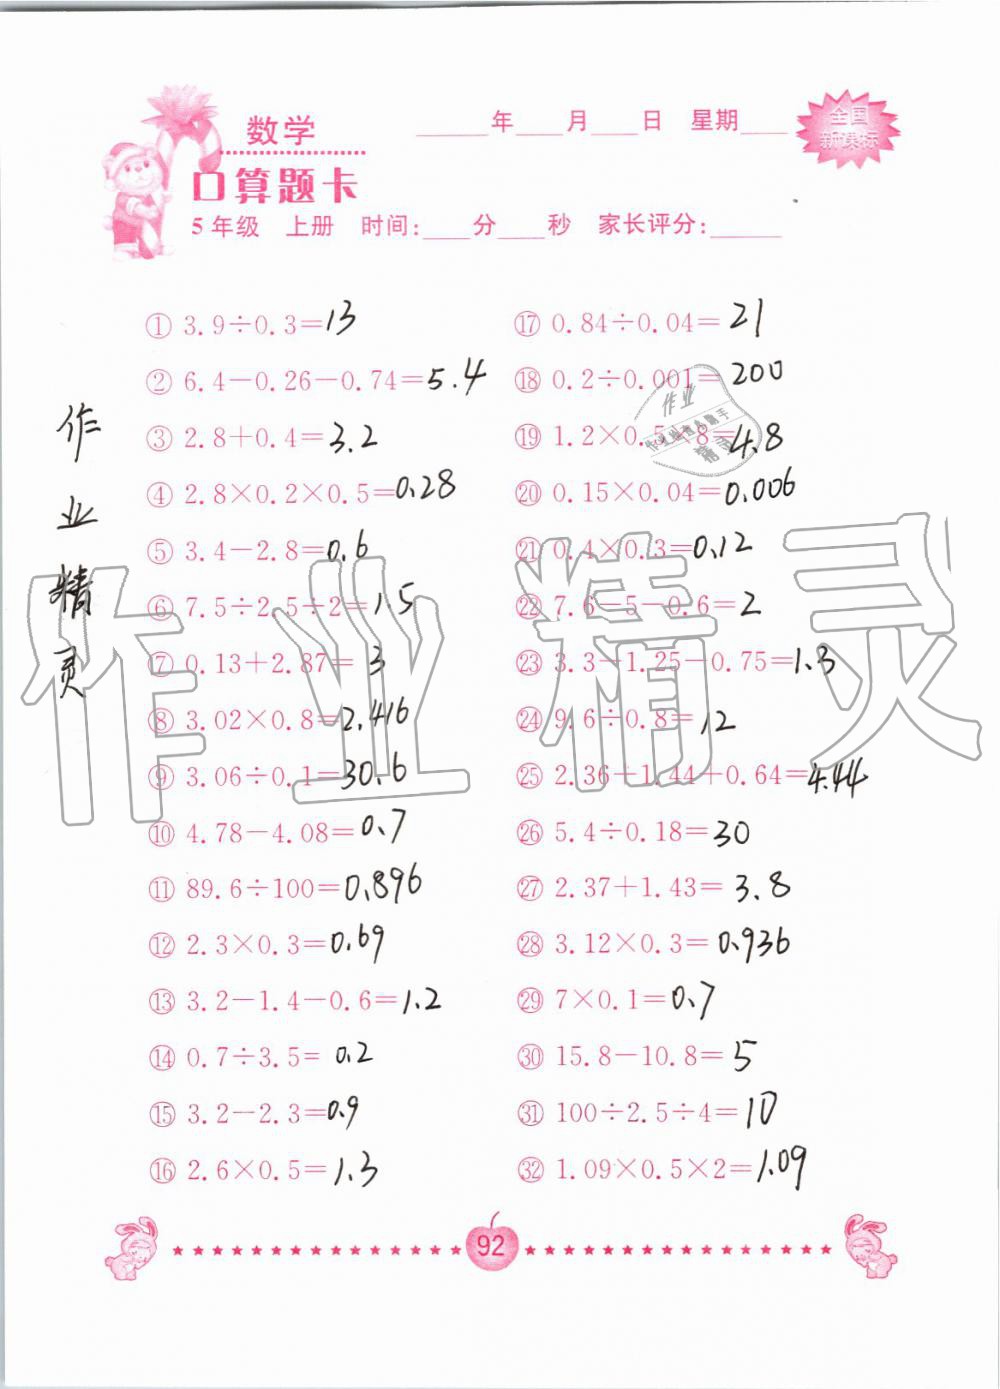 数学
口算题卡
____年___月___日 星期___
全国
新课标
5年级 上册 时间:___分___秒 家长评分:_____
① 3.9÷0.3=13
② 6.4-0.26-0.74=5.4
③ 2.8+0.4=3.2
④ 2.8×0.2×0.5=0.28
⑤ 3.4-2.8=0.6
⑥ 7.5÷2.5÷2=1.5
⑦ 0.13+2.87=3
⑧ 3.02×0.8=2.416
⑨ 3.06÷0.1=30.6
⑩ 4.78-4.08=0.7
⑪ 89.6÷100=0.896
⑫ 2.3×0.3=0.69
⑬ 3.2-1.4-0.6=1.2
⑭ 0.7÷3.5=0.2
⑮ 3.2-2.3=0.9
⑯ 2.6×0.5=1.3
⑰ 0.84÷0.04=21
⑱ 0.2÷0.001=200
⑲ 1.2×0.5×8=4.8
⑳ 0.15×0.04=0.006
㉑ 0.4×0.3=0.12
㉒ 7.6-5-0.6=2
㉓ 3.3-1.25-0.75=1.3
㉔ 9.6÷0.8=12
㉕ 2.36+1.44+0.64=4.44
㉖ 5.4÷0.18=30
㉗ 2.37+1.43=3.8
㉘ 3.12×0.3=0.936
㉙ 7×0.1=0.7
㉚ 15.8-10.8=5
㉛ 100÷2.5÷4=10
㉜ 1.09×0.5×2=1.09
作业精灵
作业精灵
92